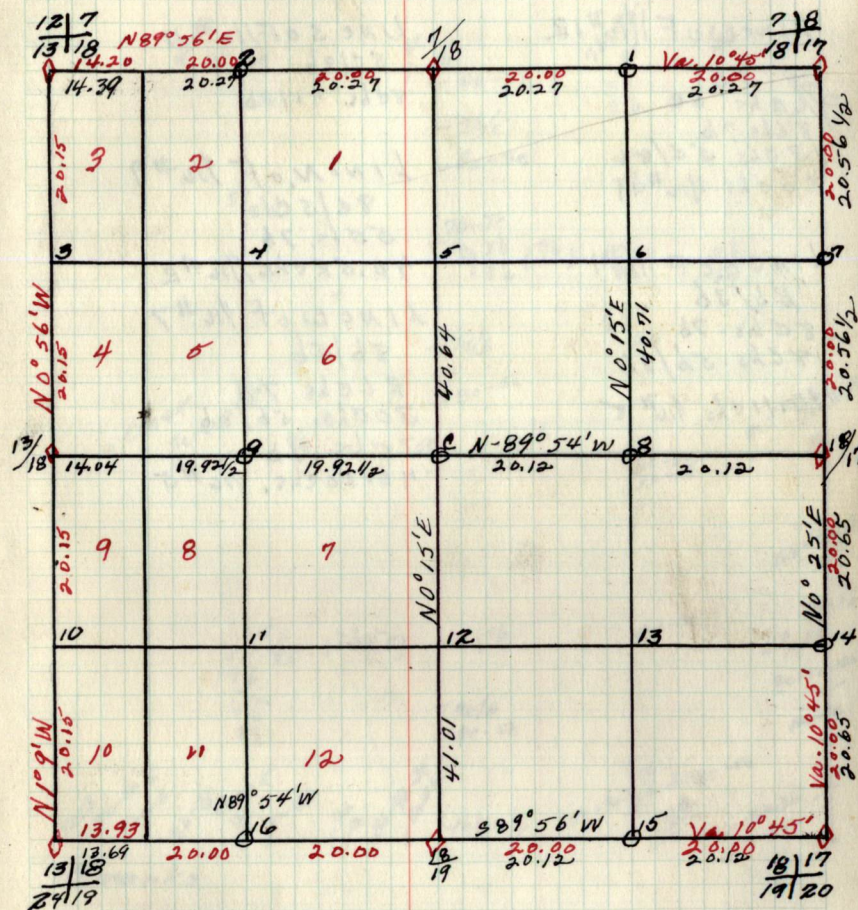 12|7
13|18
N89°56'E
7/18
7|8
18|17
14.20 20.00 2 20.00 20.00 1 Va. 10°45' 20.00
14.39 20.27 20.27 20.27 20.27
20.15 3 2 1 20.00 20.56 1/2
3 4 5 6 7
N0°56'W
20.15 4 5 6 40.64 N0°15'E 40.71 20.00 20.56 1/2
13/18 9 C N-89°54'W 8 18/1
14.04 19.92 1/2 19.92 1/2 20.12 20.12
20.15 9 8 7 N0°15'E N0°25'E 20.00 20.65
10 11 12 13 14
N1°9'W 20.15 10 11 12 41.01 Va. 10°45' 20.00 20.65
N89°54'W
13.93 16 S89°56'W 15 Va. 10°45'
13.69 20.00 20.00 18/19 20.00 20.00
20.12 20.12
13|18
24|19
18|17
19|20